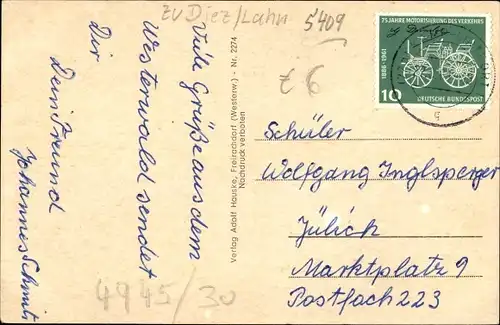 zu Diez/Lahn
5409
Viele Grüße aus dem
Westerwald sendet
Dir
Dein Freund
Johannes Schmit
Verlag Adolf Hauske, Freirachdorf (Westerw.) - Nr. 2274
Nachdruck verboten
£ 6
75 JAHRE MOTORISIERUNG DES VERKEHRS
1886-1961
10
DEUTSCHE BUNDESPOST
Schüler
Wolfgang Inglsperger
Jülich
Marktplatz 9
Postfach 223
4945/30